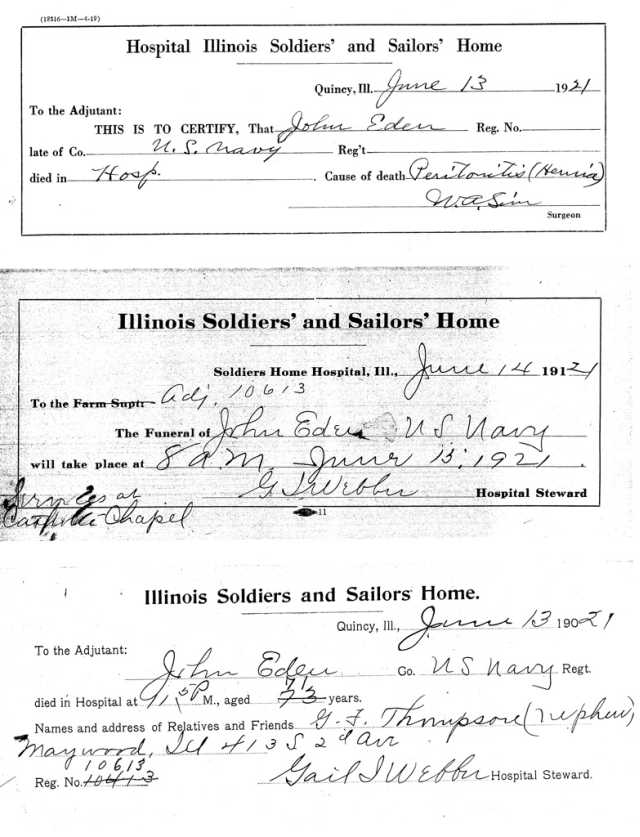 (18516—1M—4-19)
Hospital Illinois Soldiers' and Sailors' Home
Quincy, Ill. June 13 1921
To the Adjutant:
THIS IS TO CERTIFY, That John Eden Reg. No.
late of Co. U.S. Navy Reg't
died in Hosp. Cause of death Peritonitis (Hernia)
W.A. Sim
Surgeon
Illinois Soldiers' and Sailors' Home
Soldiers Home Hospital, Ill., June 14 19121
To the Farm Suptr Adj. 10613
The Funeral of John Eden U S Navy
will take place at 8 a.m. June 15, 1921.
G I Webber Hospital Steward
Services at
Catholic Chapel
11
Illinois Soldiers and Sailors Home.
Quincy, Ill., June 13 19021
To the Adjutant:
John Eden Co. U S Navy Regt.
71
died in Hospital at P M., aged 73 years.
Names and address of Relatives and Friends G. F. Thompson (nephew)
Maywood, Ill 413 S 2d Ave
10613
Reg. No. 10413 Gail I Webber Hospital Steward.